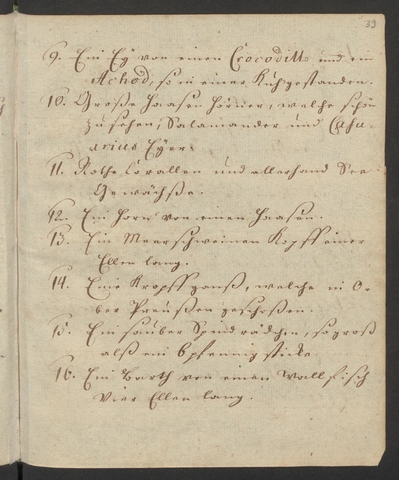 39
9. Ein Ey von einen Crocodill, und ein
Achad, so in einer Kuh gestanden.
10. Große Haasen Hörner, welche schön
zu sehen, Salamander und Casu-
arius Eyer.
11. Rothe Corallen und allerhand See
Gewächße.
12. Ein Horn von einen Haasen.
13. Ein Meerschweinen Kopff einer
Ellen lang.
14. Eine Kropffganß, welche in O-
ber Preußen geschoßen.
15. Ein sauber Spinnrädchen, so groß
alß ein 6 pfennig stücke
16. Ein Barth von einen Wallfisch
Vier Ellen lang.